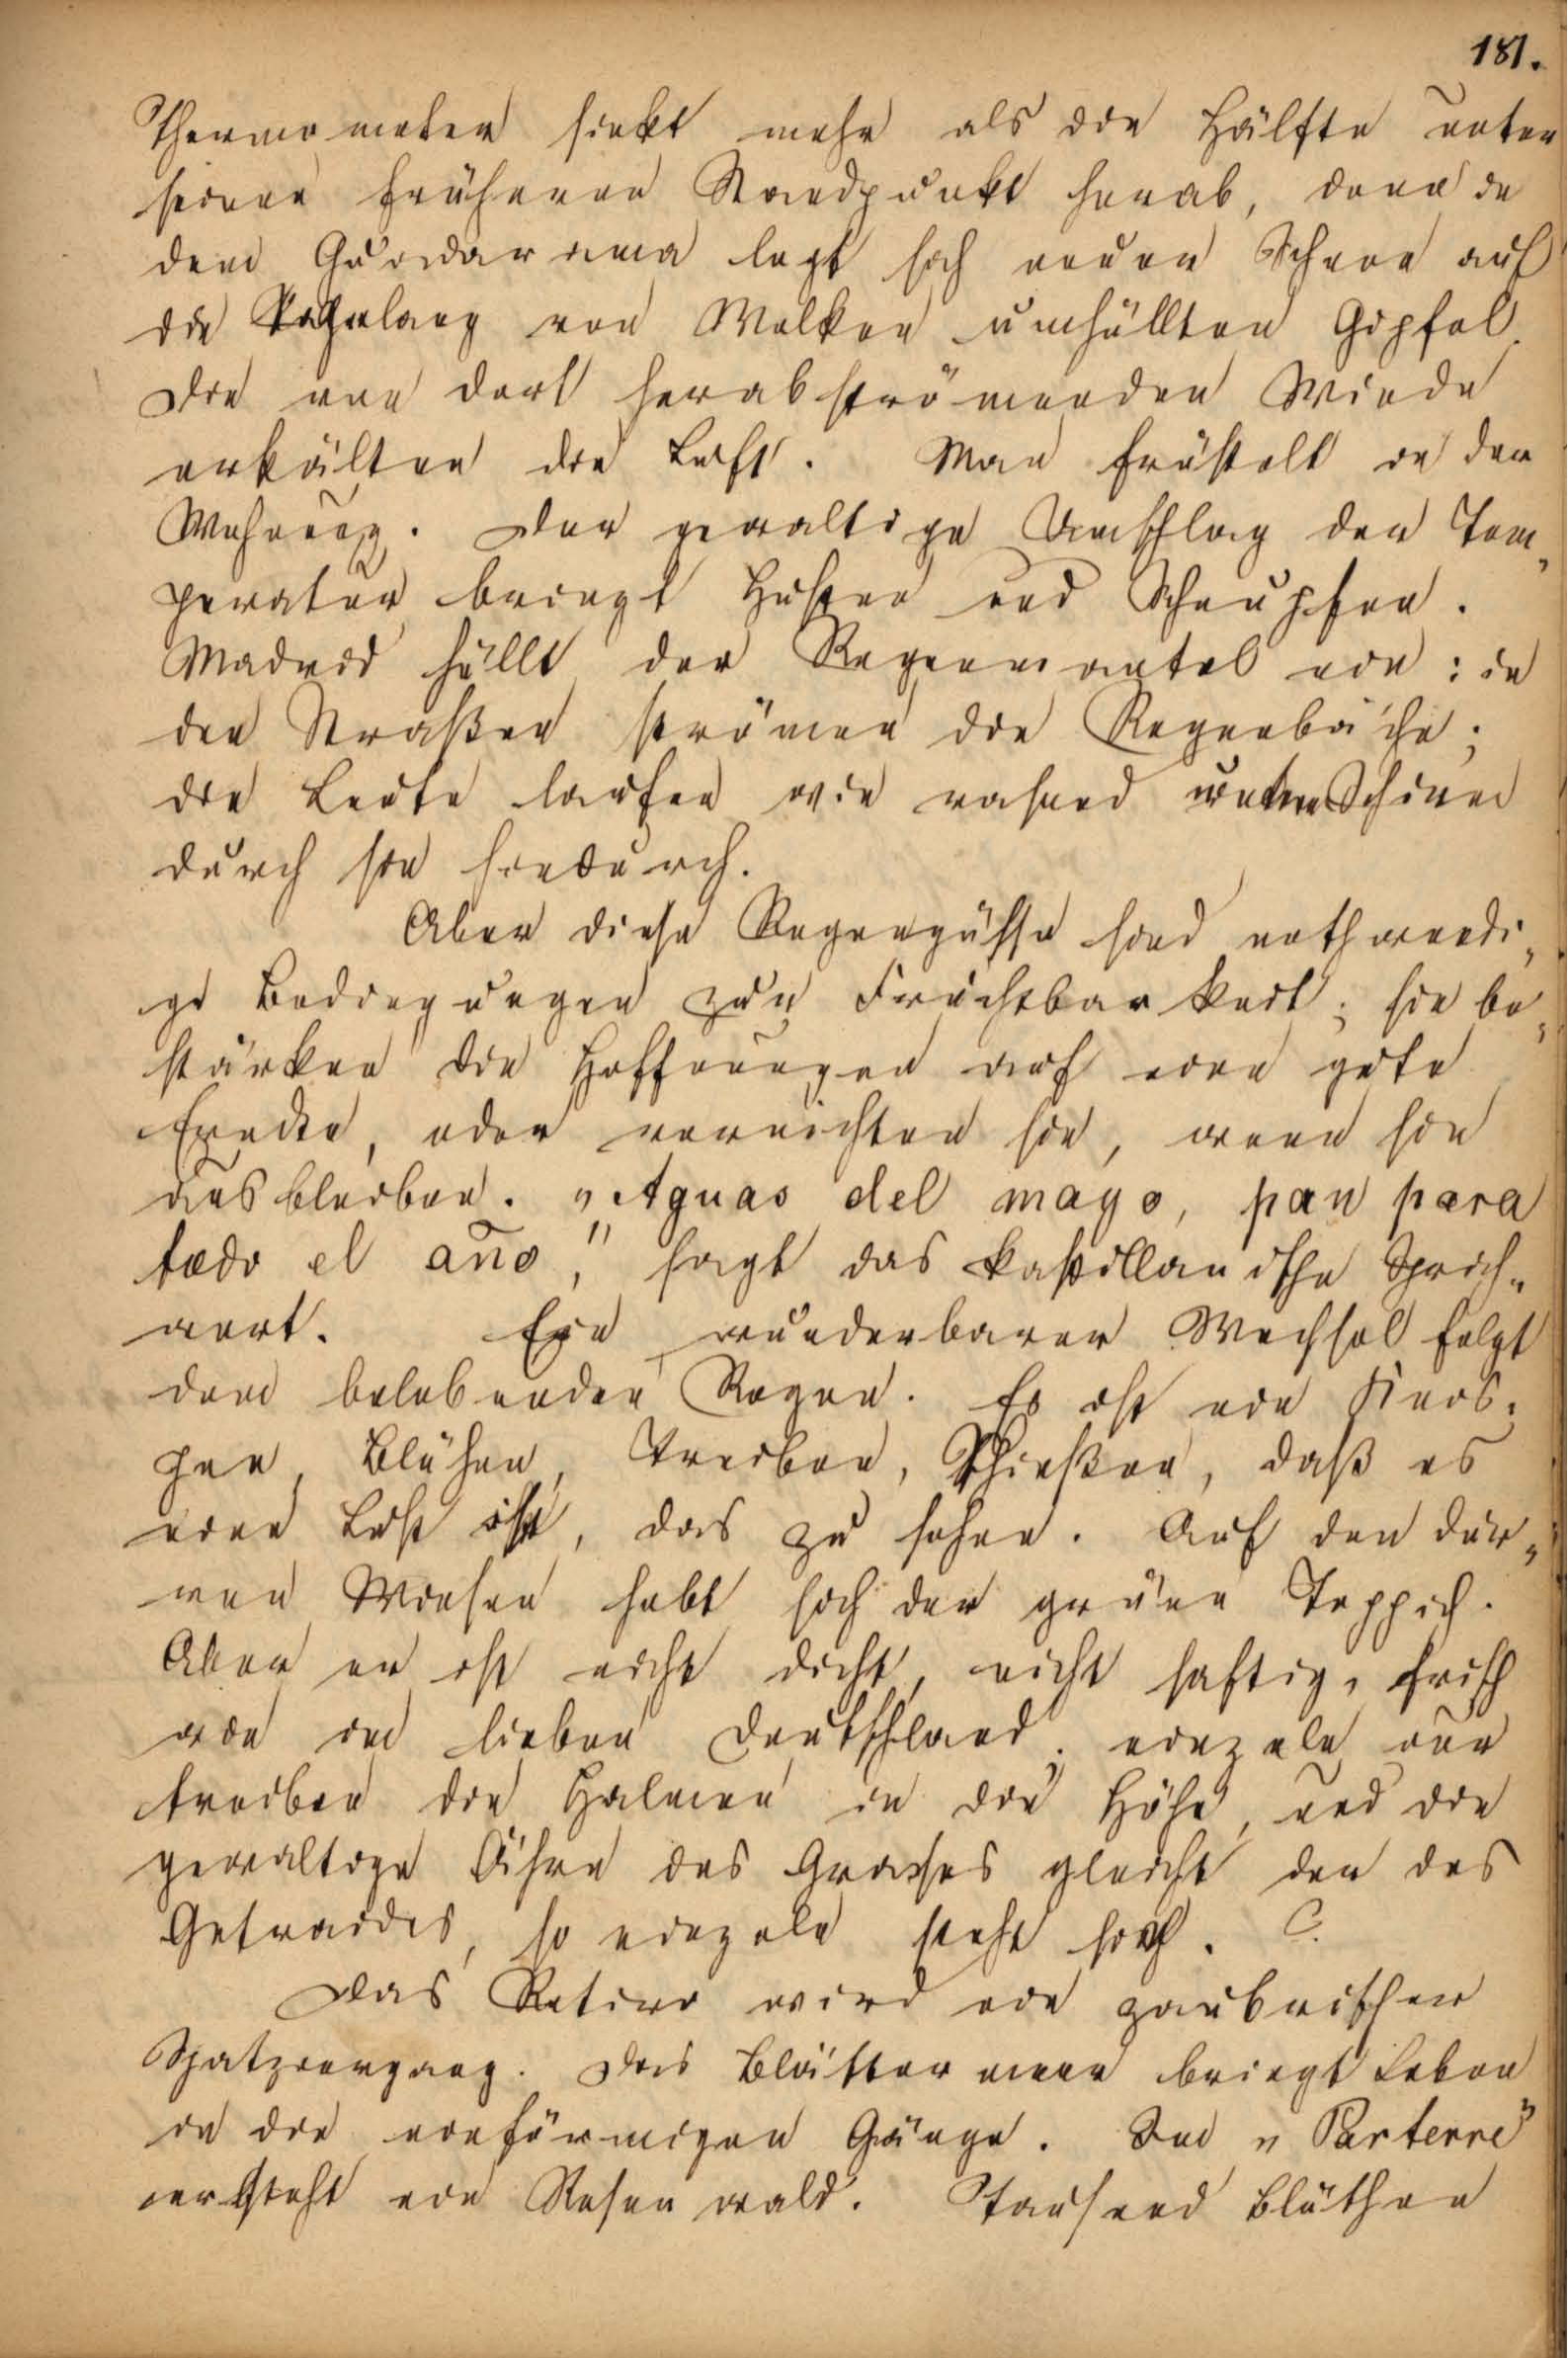 181.
Thermometer sinkt mehr als die Hälfte unter
seinen früheren Standpunkt herab, denn in
dem Guadarrama legt sich neuer Schnee auf
die tagelang von Wolken umhüllten Gipfel.
Die von dort herabströmenden Winde
erkälten die Luft. Man fröstelt in der
Wohnung. Der gewaltige Umschlag der Tem„
peratur bringt Husten und Schnupfen.
Madrid hüllt der Regenmantel ein: in
den Straßen strömen die Regenbäche;
die Leute laufen wie rasend unterm Schirm
durch sie hindurch.
Aber diese Regengüsse sind nothwendi„
ge Bedingungen zur Fruchtbarkeit; sie be„
stärken die Hoffnungen auf eine gute
Erndte, oder vernichten sie, wenn sie
ausbleiben. „Aguas del mayo, pan para
todo el año," sagt das kastillanische Sprich„
wort. Ein wunderbarer Wechsel folgt
dem belebenden Regen. Es ist ein Knos„
pen, Blühen, Treiben, Schießen, daß es
eine Lust ist, das zu sehen. Auf den dür„
ren Wiesen hebt sich der grüne Teppich.
Aber er ist nicht dicht, nicht saftig, frisch
wie im lieben Deutschland; einzeln nur
treiben die Halmen in die Höhe, und die
gewaltige Ähre des Grases gleicht der des
Getraides, so einzeln steht sie.
Das Retiro wird ein zaubrischer
Spatziergang. Das Blättermeer bringt Leben
in die einförmigen Gänge. Im „Parterre"
ersteht ein Rosenwald. Tausend Blüthen